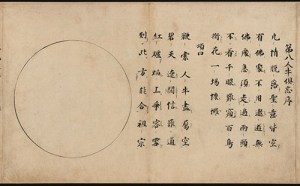 第八人牛俱忘序
凡情脫落聖意皆空
有佛處不用遨遊無
佛處急須走過兩頭
不著千眼難窺百鳥
銜花一場懡㦬
頌曰
鞭索人牛盡屬空
碧天遼闊信難通
紅爐焰上爭容雪
到此方能合祖宗